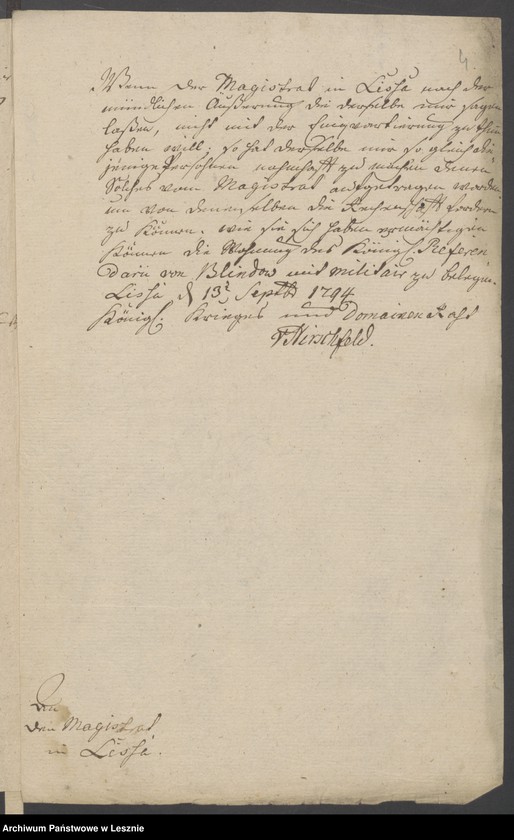 4.
Wenn der Magistrat in Lissa nach der
mündlichen Äußerung die derselbe mir sagen
laßen, nicht mit der Einquartierung zu thun
haben will; so hat derselbe mir so gleich die
jenige Persohnen nahmhafft zu machen denen
Solches vom Magistrat aufgetragen worden
um von denenselben die Rechenschafft fordern
zu können. wie sie sich haben ermächtigen
können die Wohnung des Königl. Referen
darii von Blindow mit Militair zu belegen.
Lissa d 13t Septbr 1794
Königl. Krieges und Domainen Raht
vHirschfeld.
An
den Magistrat
in Lissa.
Archiwum Państwowe w Lesznie